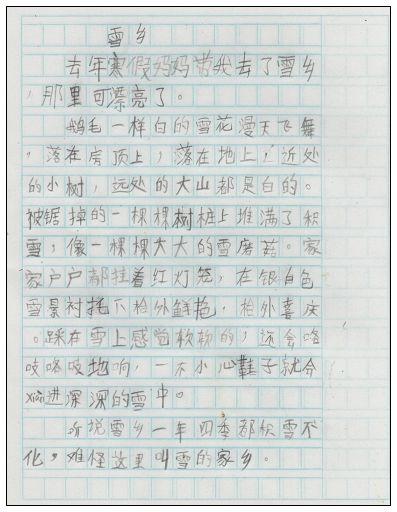 雪乡
去年寒假妈妈带我去了雪乡
，那里可漂亮了。
鹅毛一样白的雪花漫天飞舞
，落在房顶上，落在地上，近处
的小树，远处的大山都是白的。
被锯掉的一棵棵树桩上堆满了积
雪，像一棵棵大大的雪蘑菇。家
家户户都挂着红灯笼，在银白色
雪景衬托下格外鲜艳，格外喜庆
。踩在雪上感觉软软的，还会咯
吱咯吱地响，一不小心鞋子就会
xiàn进深深的雪中。
听说雪乡一年四季都积雪不
化，难怪这里叫雪的家乡。